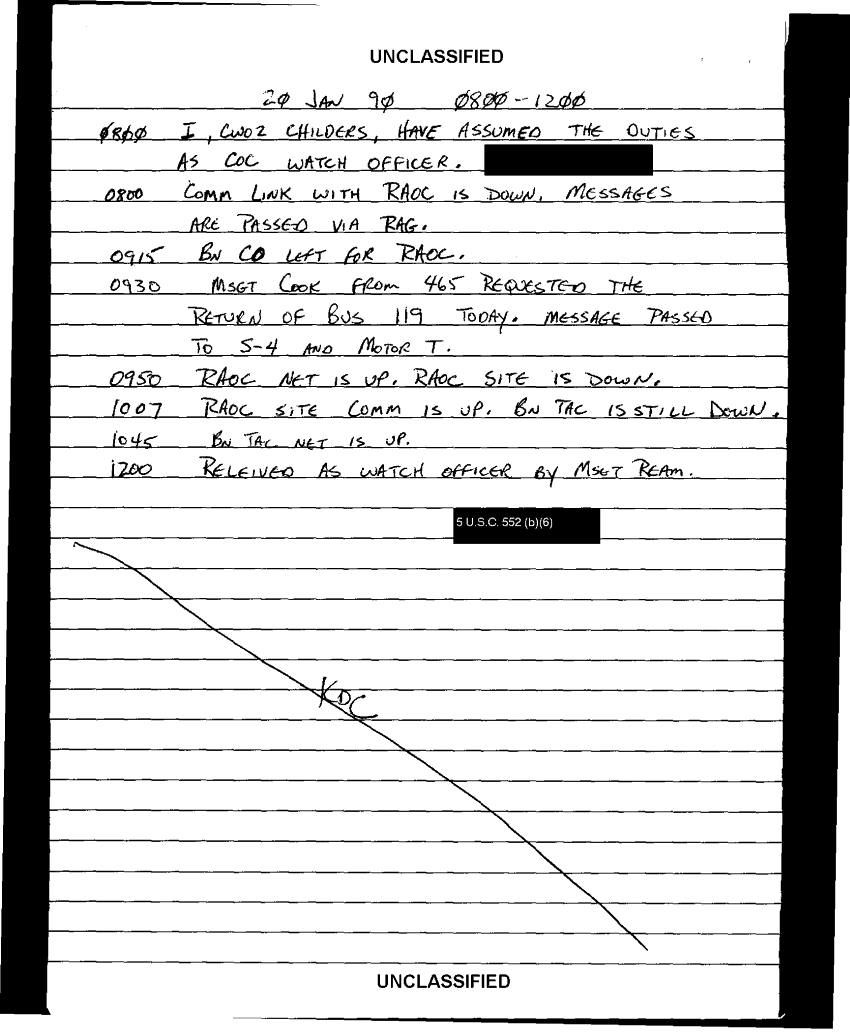 UNCLASSIFIED
2Ø JAN 9Ø Ø8ØØ-12ØØ
Ø8ØØ I, CWO2 CHILDERS, HAVE ASSUMED THE DUTIES
AS COC WATCH OFFICER.
0800 COMM LINK WITH RAOC IS DOWN. MESSAGES
ARE PASSED VIA RAG.
0915 BN CO LEFT FOR RAOC.
0930 MSGT COOK FROM 465 REQUESTED THE
RETURN OF BUS 119 TODAY. MESSAGE PASSED
TO S-4 AND MOTOR T.
0950 RAOC NET IS UP. RAOC SITE IS DOWN.
1007 RAOC SITE COMM IS UP. BN TAC IS STILL DOWN.
1045 BN TAC NET IS UP.
1200 RELEIVED AS WATCH OFFICER BY MSGT REAM.
5 U.S.C. 552 (b)(6)
KDC
UNCLASSIFIED